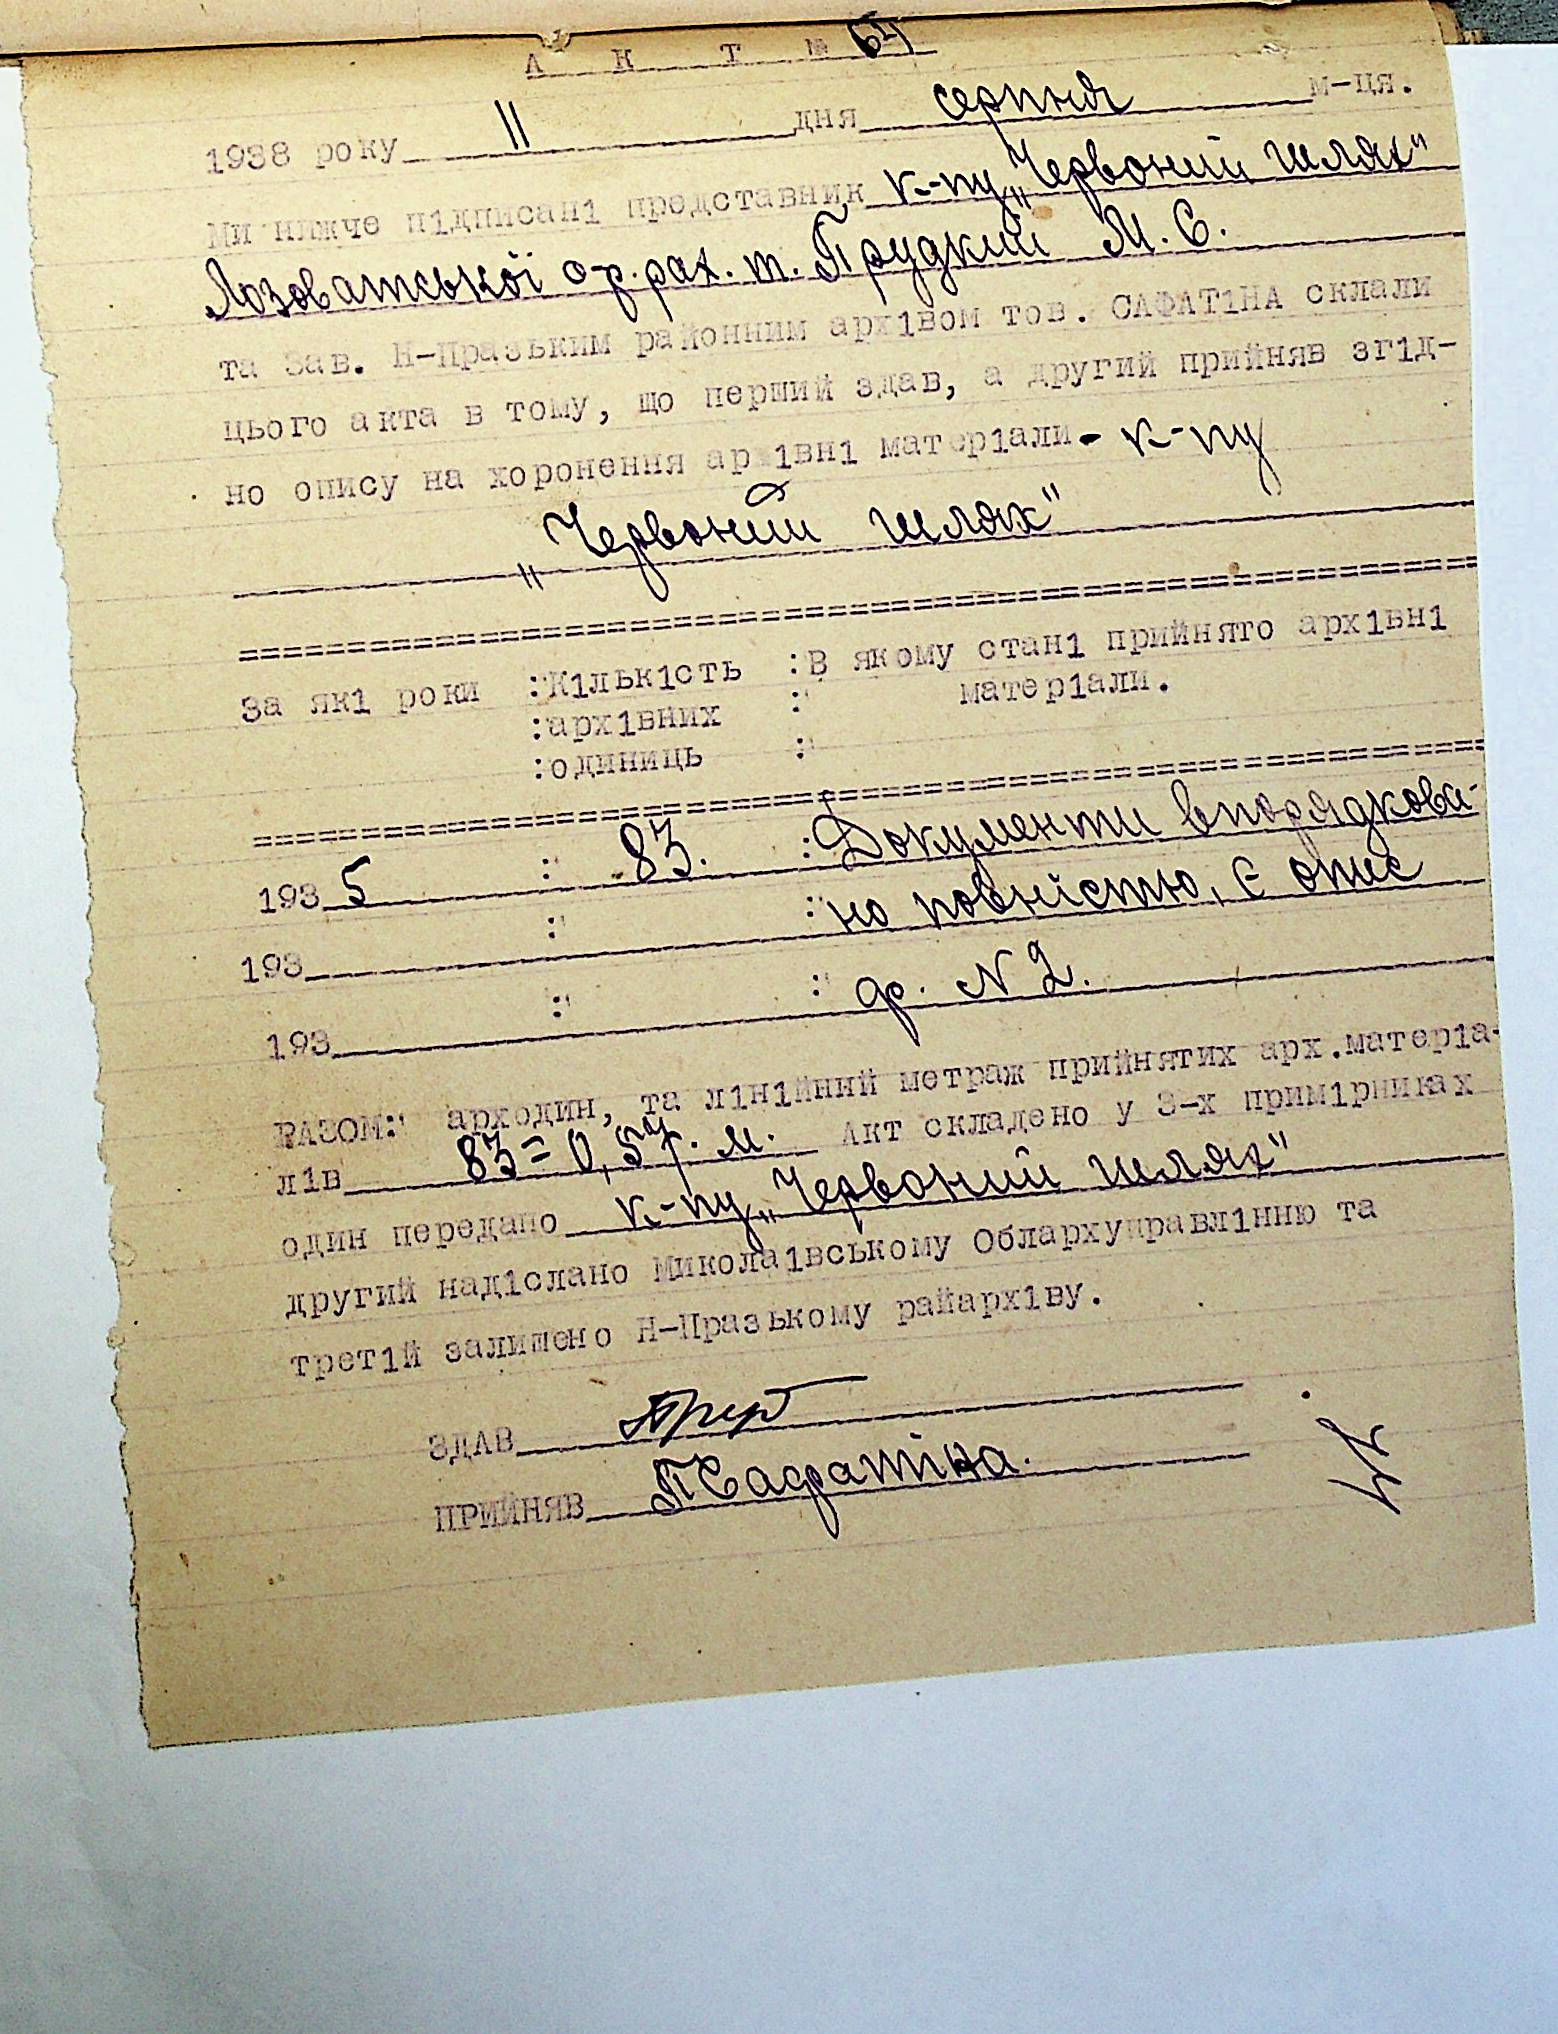 А К Т № 64
1938 року 11 дня серпня м-ця.
Ми нижче підписані представник к-пу „Червоний шлях"
Лозоватської с-р. рах. т. Прудкий М. С.
та Зав. Н-Празьким районним архівом тов. САФАТІНА склали
цього акта в тому, що перший здав, а другий прийняв згід-
но опису на хоронення архівні матеріали - к-пу
„Червоний шлях"
За які роки :Кількість :В якому стані прийнято архівні
:архівних : матеріали.
:одиниць :
193 5 : 83. : Документи впорядкова-
193 : : но повністю, є опис
193 : : ф. N 2.
РАЗОМ: арходин, та лінійний метраж прийнятих арх.матеріа-
лів 83 = 0,5 м. Акт складено у 3-х примірниках
один передано к-пу „Червоний шлях"
другий надіслано Миколаївському Облархуправлінню та
третій залишено Н-Празькому райархіву.
ЗДАВ
ПРИЙНЯВ ПСафатіна.